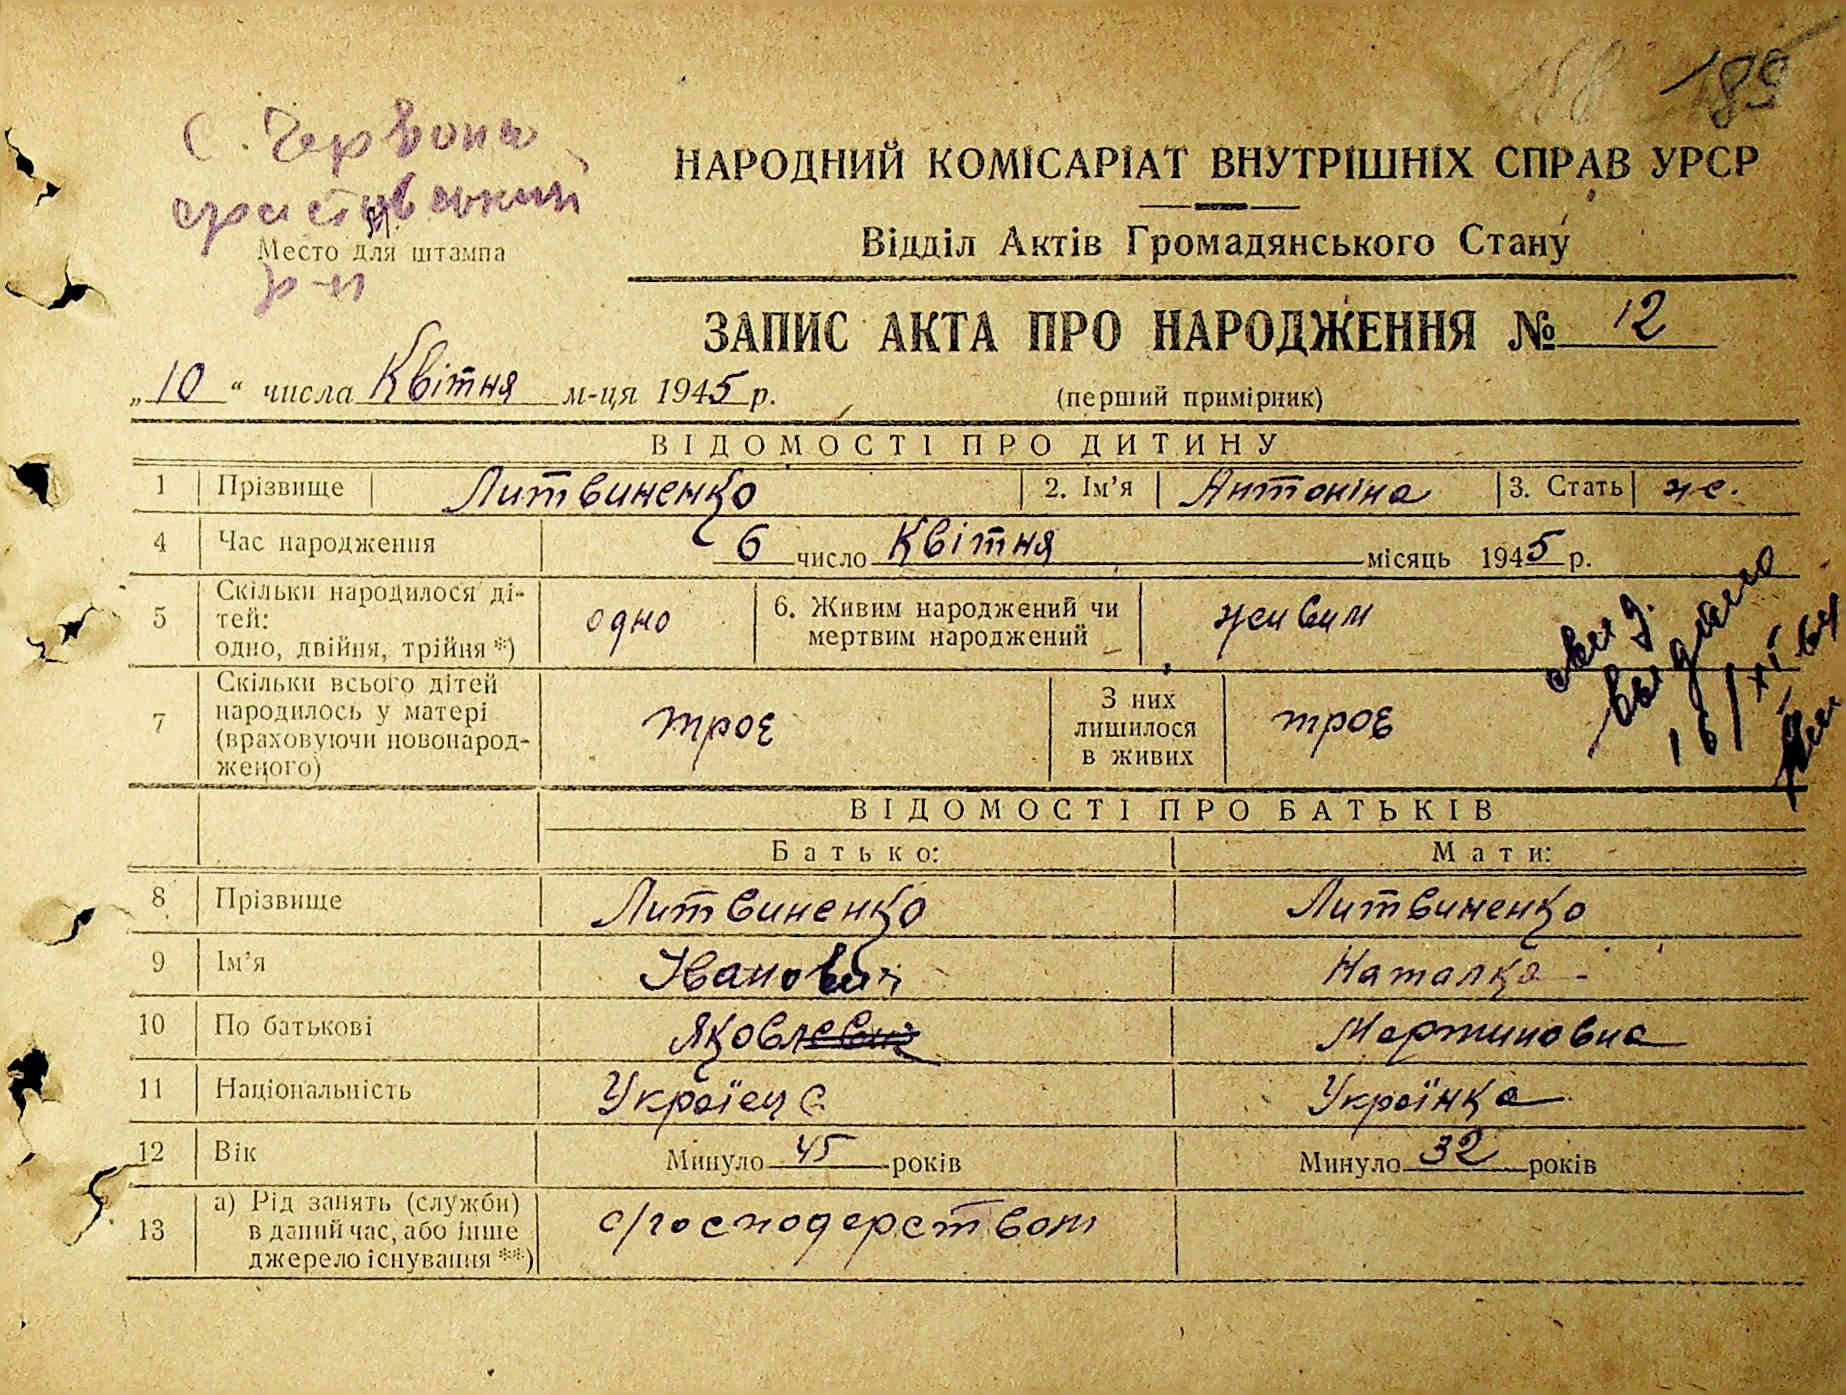 188 189
с. Червона
христинівський
Место для штампа
р-н
НАРОДНИЙ КОМІСАРІАТ ВНУТРІШНІХ СПРАВ УРСР
Відділ Актів Громадянського Стану
ЗАПИС АКТА ПРО НАРОДЖЕННЯ № 12
„10“ числа Квітня м-ця 1945 р.
(перший примірник)
ВІДОМОСТІ ПРО ДИТИНУ
1 Прізвище Литвиненко 2. Ім'я Антоніна 3. Стать ж.
4 Час народження 6 число Квітня місяць 1945 р.
5 Скільки народилося дітей: одно, двійня, трійня *) одно 6. Живим народжений чи мертвим народжений живим
свид. выдано
16/XI
7 Скільки всього дітей народилось у матері (враховуючи новонародженого) троє З них лишилося в живих троє
ВІДОМОСТІ ПРО БАТЬКІВ
Батько: Мати:
8 Прізвище Литвиненко Литвиненко
9 Ім'я Іванович Наталка
10 По батькові Яковлевич Мартиновна
11 Національність Україець Українка
12 Вік Минуло 45 років Минуло 32 років
13 а) Рід занять (служби) в даний час, або інше джерело існування **) с/господерством